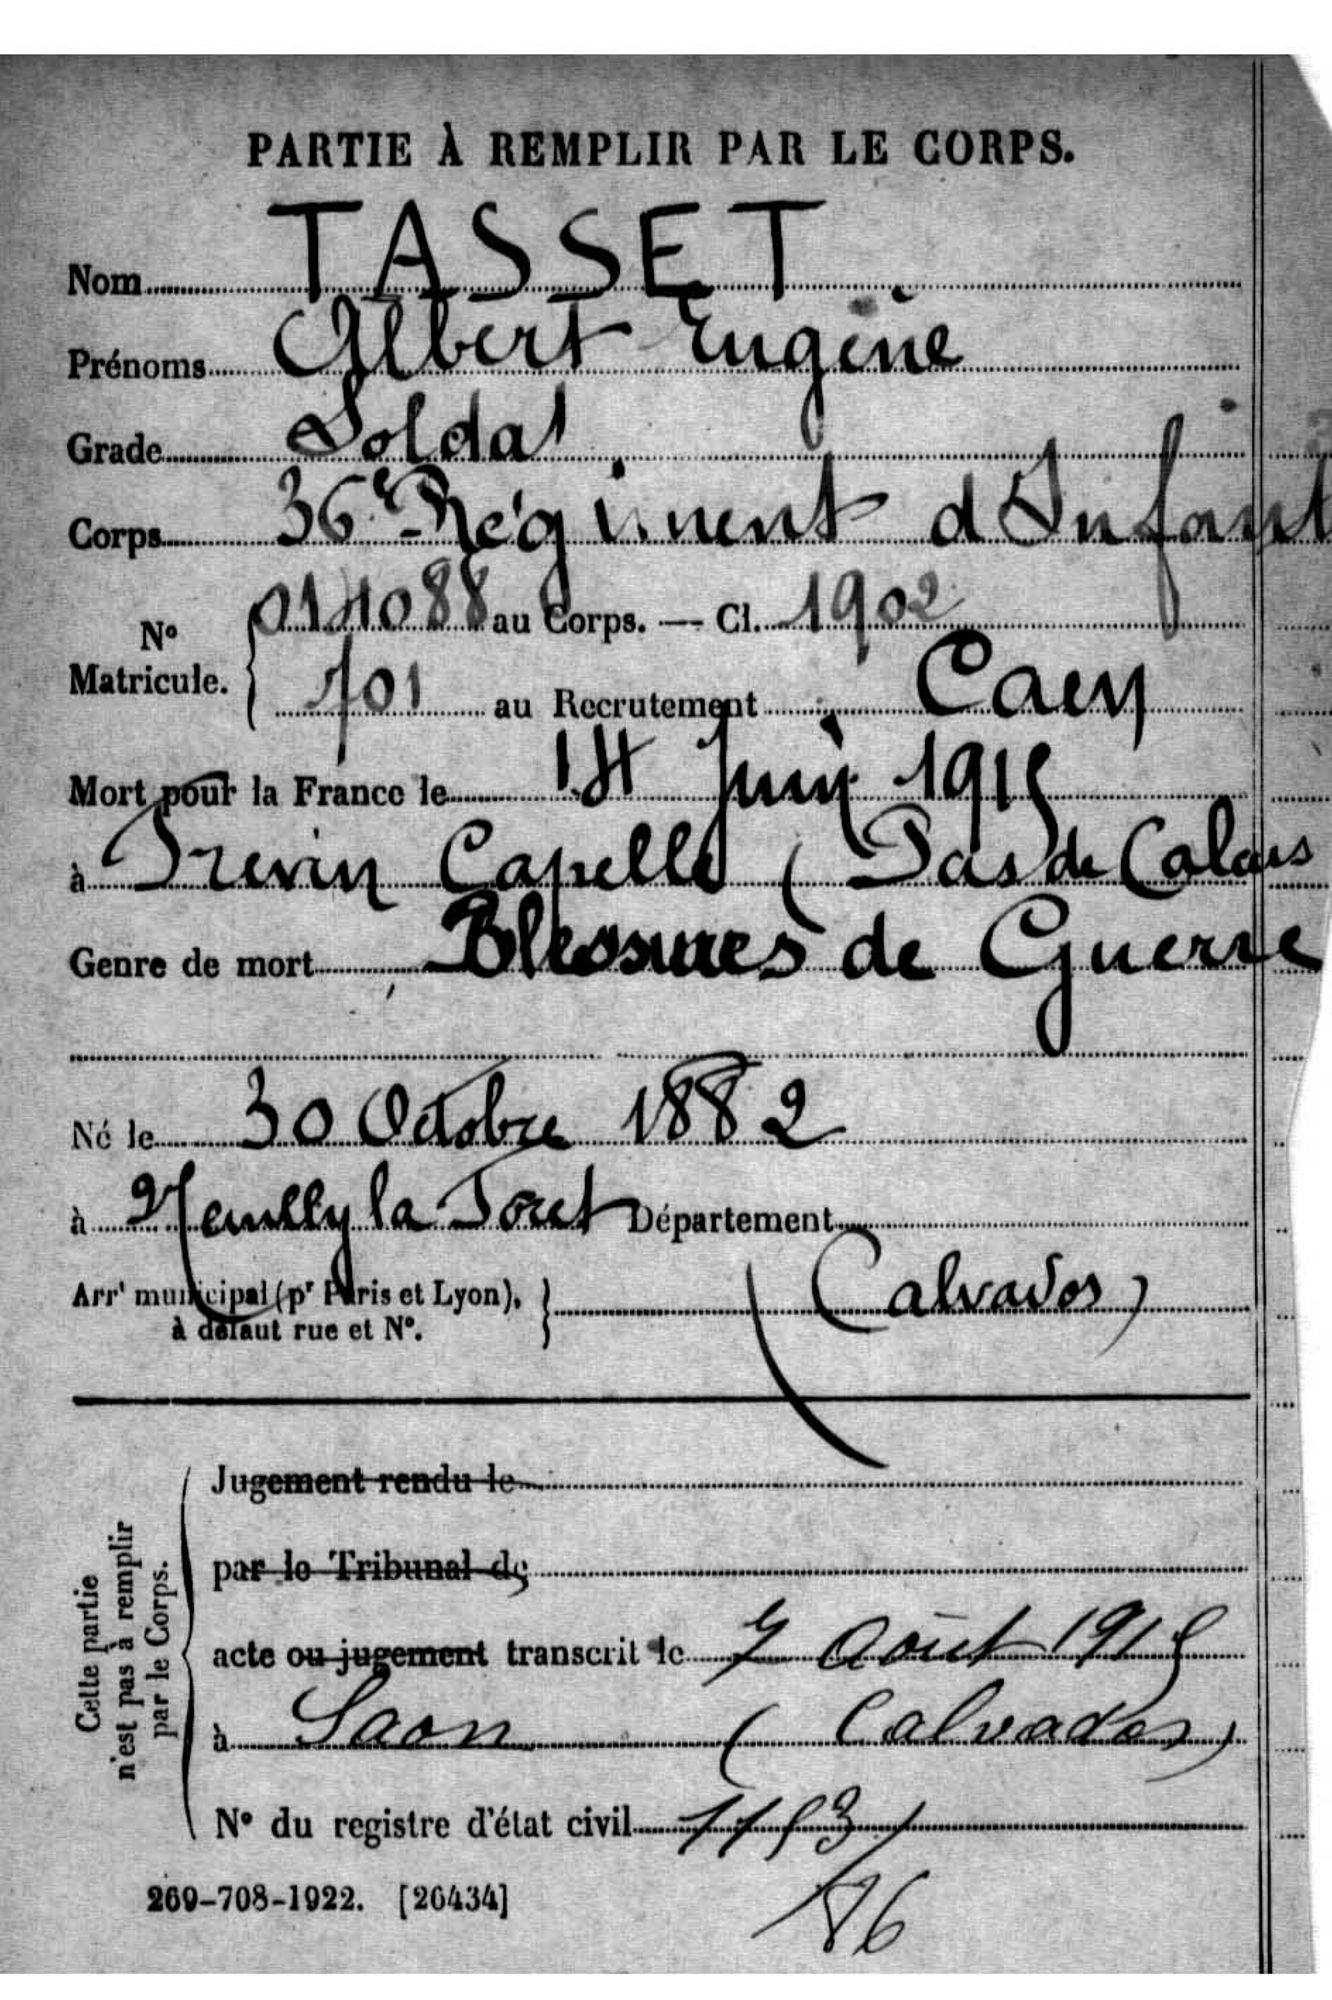 PARTIE À REMPLIR PAR LE CORPS.
Nom TASSET
Prénoms Albert Eugène
Grade Soldat
Corps 36e Régiment d'Infant
N° Matricule. 011088 au Corps. — Cl. 1902
701 au Recrutement Caen
Mort pour la France le 14 Juin 1915
à Frevin Capelle (Pas de Calais
Genre de mort Blessures de Guerre
Né le 30 Octobre 1882
à Neuilly la Foret Département
Arrt municipal (pr Paris et Lyon), à défaut rue et N°. (Calvados)
Cette partie n'est pas à remplir par le Corps.
Jugement rendu le
par le Tribunal de
acte ou jugement transcrit le 7 Août 1915
à Saon (Calvados)
N° du registre d'état civil
269-708-1922. [26434]